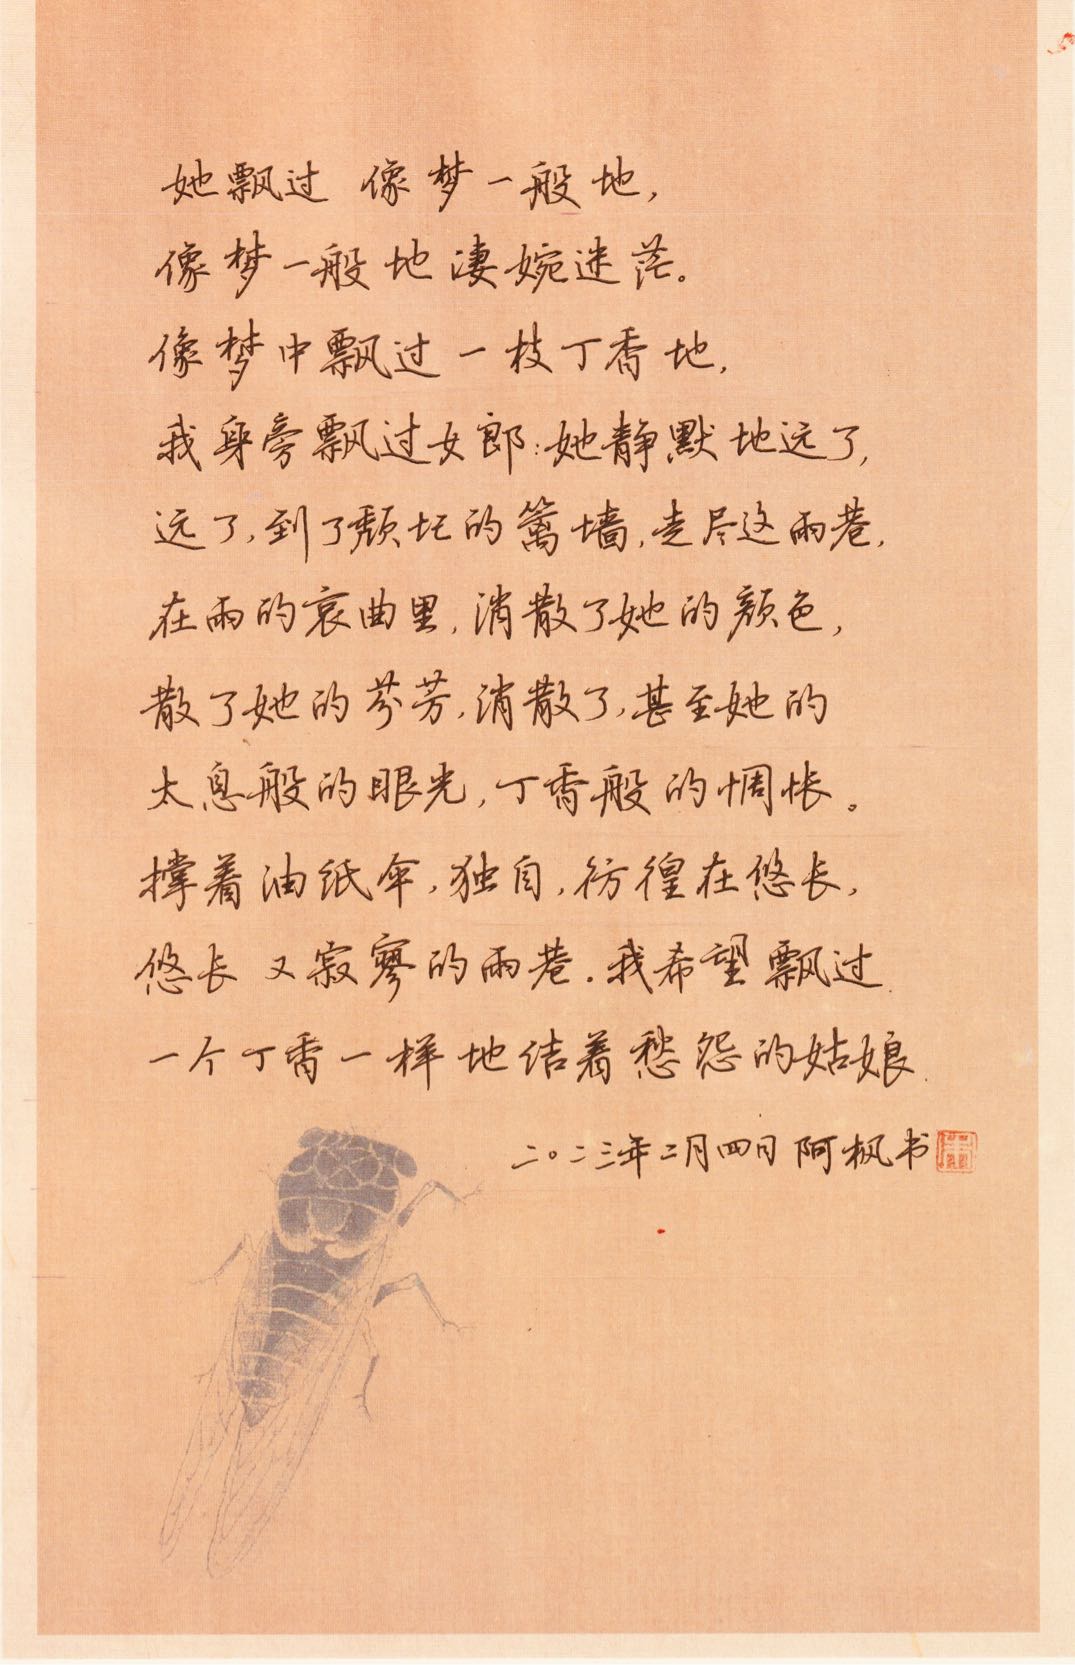 她飘过 像梦一般地，
像梦一般地凄婉迷茫。
像梦中飘过一枝丁香地，
我身旁飘过女郎：她静默地远了，
远了，到了颓圮的篱墙，走尽这雨巷，
在雨的哀曲里，消散了她的颜色，
散了她的芬芳，消散了，甚至她的
太息般的眼光，丁香般的惆怅。
撑着油纸伞，独自，彷徨在悠长，
悠长又寂寥的雨巷．我希望飘过
一个丁香一样地结着愁怨的姑娘．
二〇二三年二月四日 阿枫书